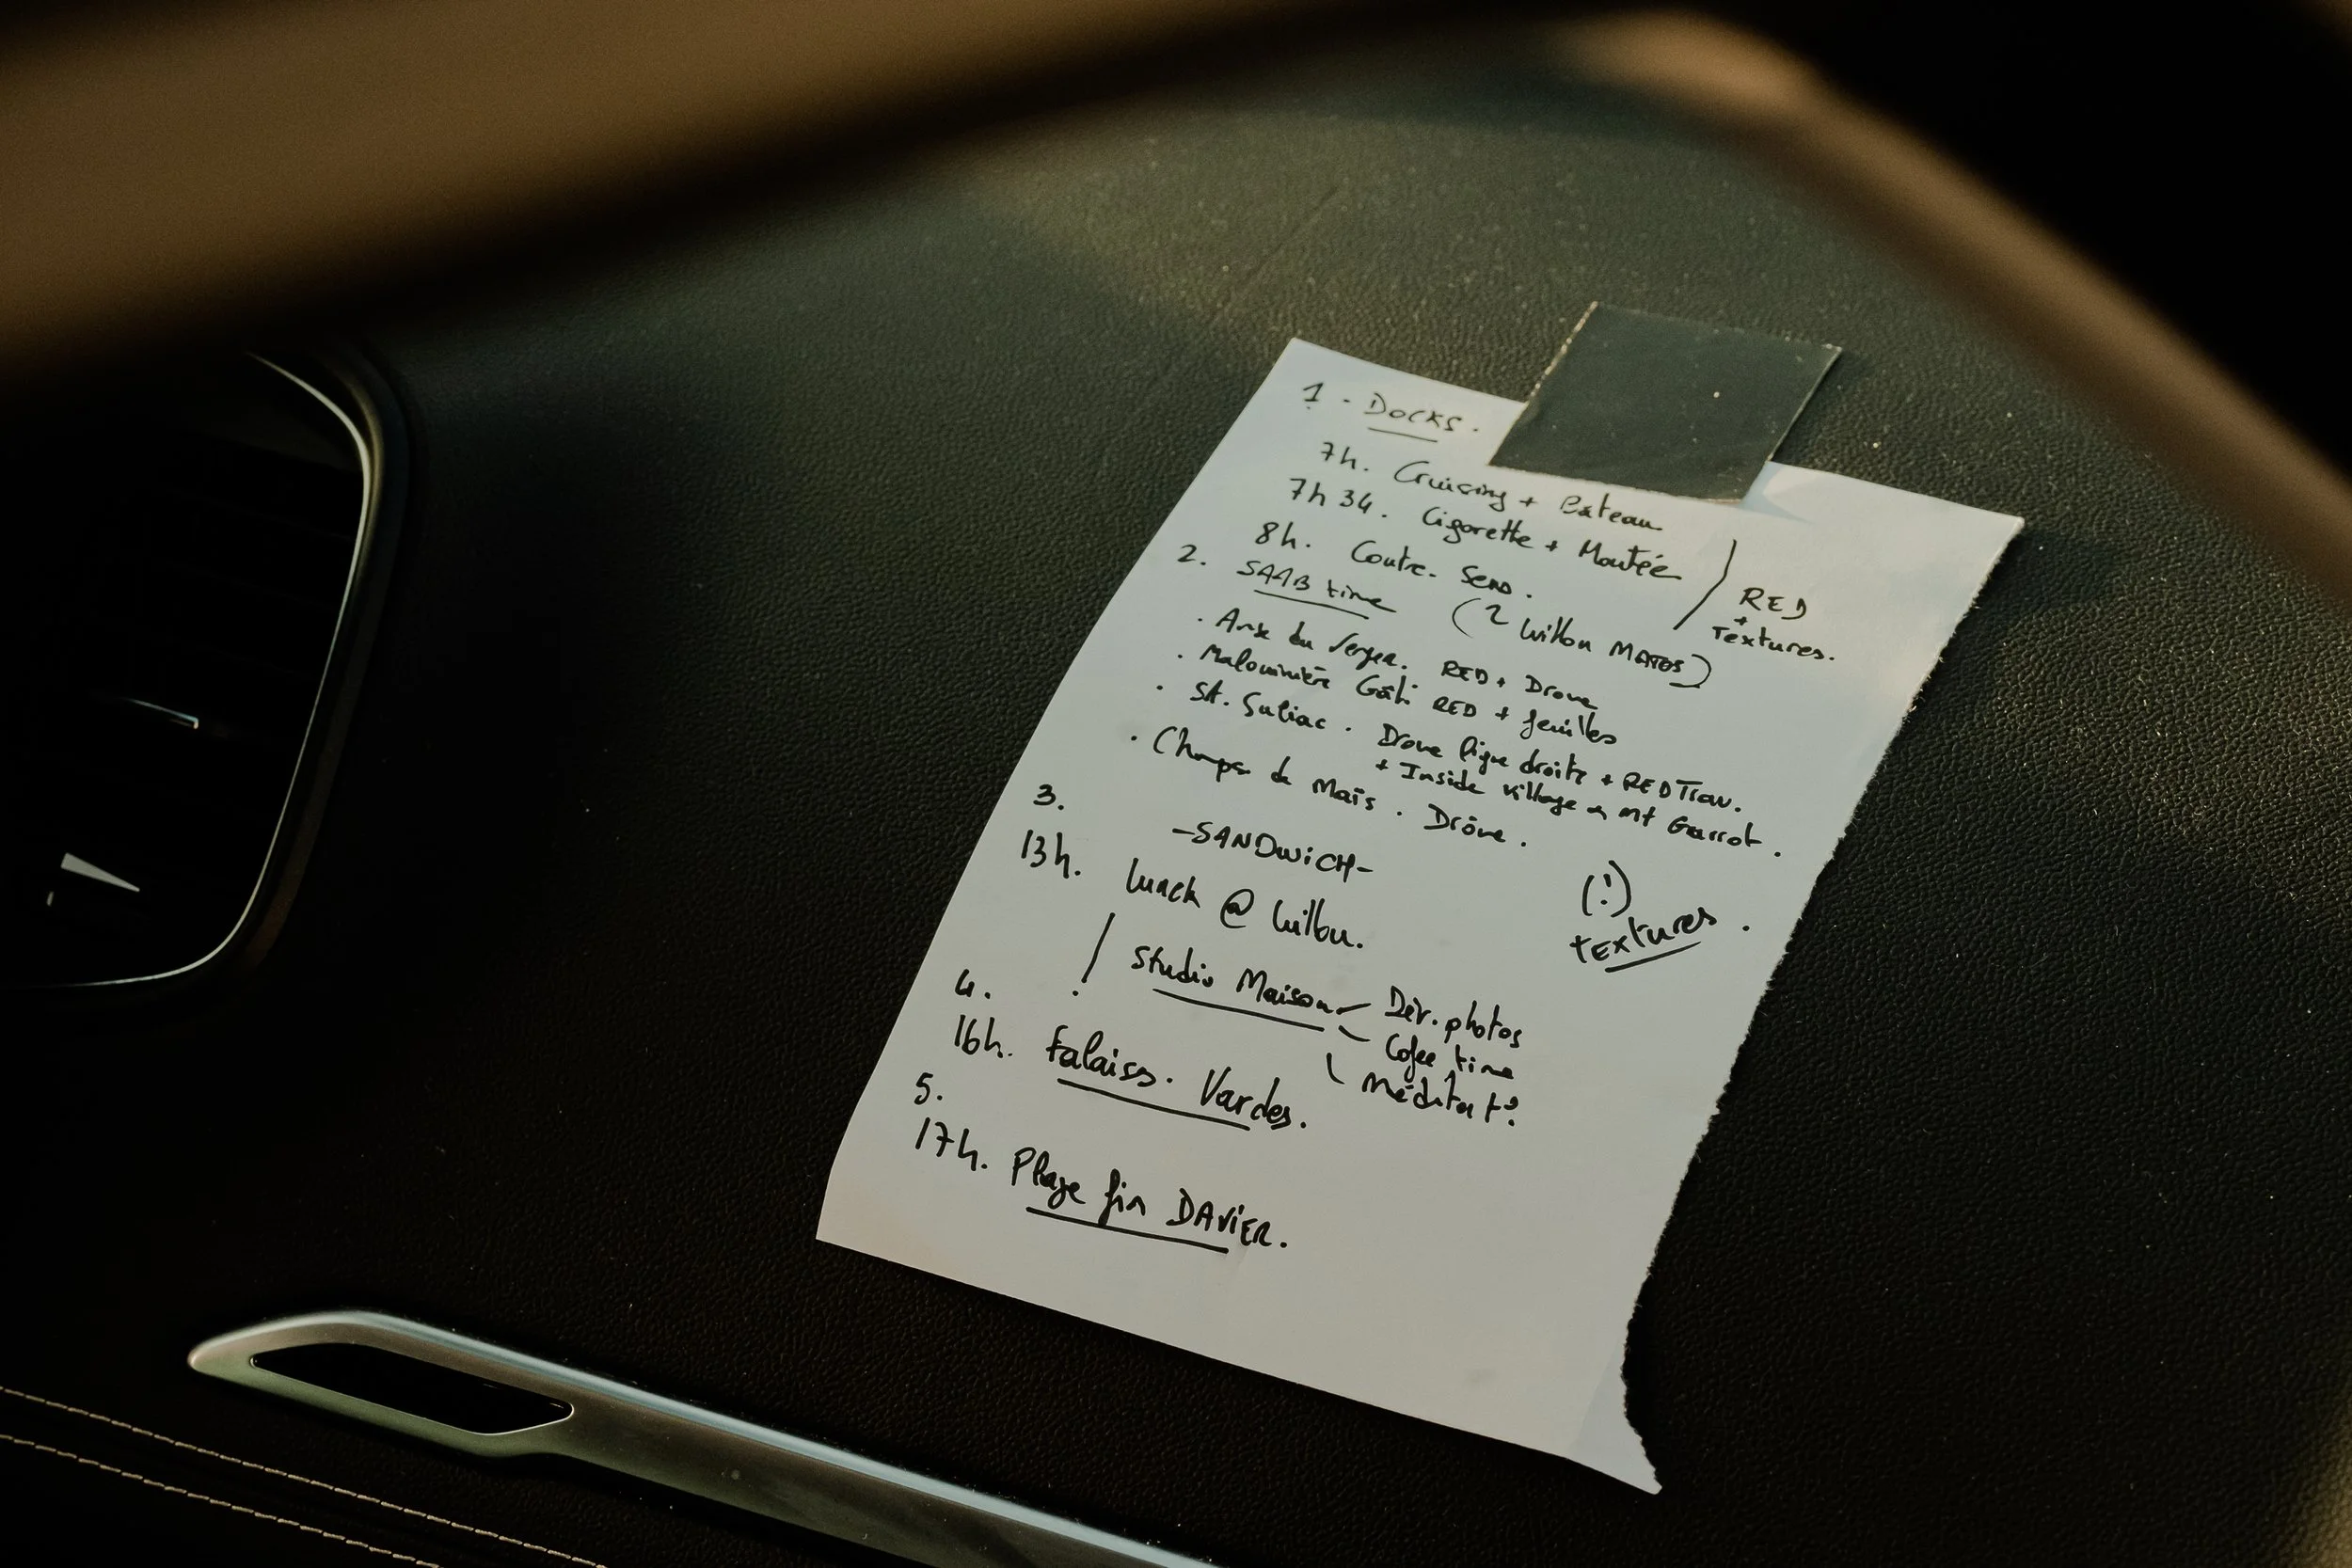 1 - DOCKS.
7h. Cruising + Bateau
7h34. Cigarette + Montée
8h. Contre-Sens.
RED
+
Textures.
2. SAAB time
(2 Wilbu MATOS)
· Anse du Verger. RED + Drone
· Malouinière Gâti RED + feuilles
· St. Suliac. Drone ligne droite + RED Trav.
+ Inside village & mt Garrot.
· Champs de Maïs. Drône.
3.
-SANDWiCH-
13h. Lunch @ Wilbu.
(!)
textures.
Studio Maison
Dév. photos
Cofee time
Méditat°
4.
16h. Falaises. Vardes.
5.
17h. Plage fin DAViER.